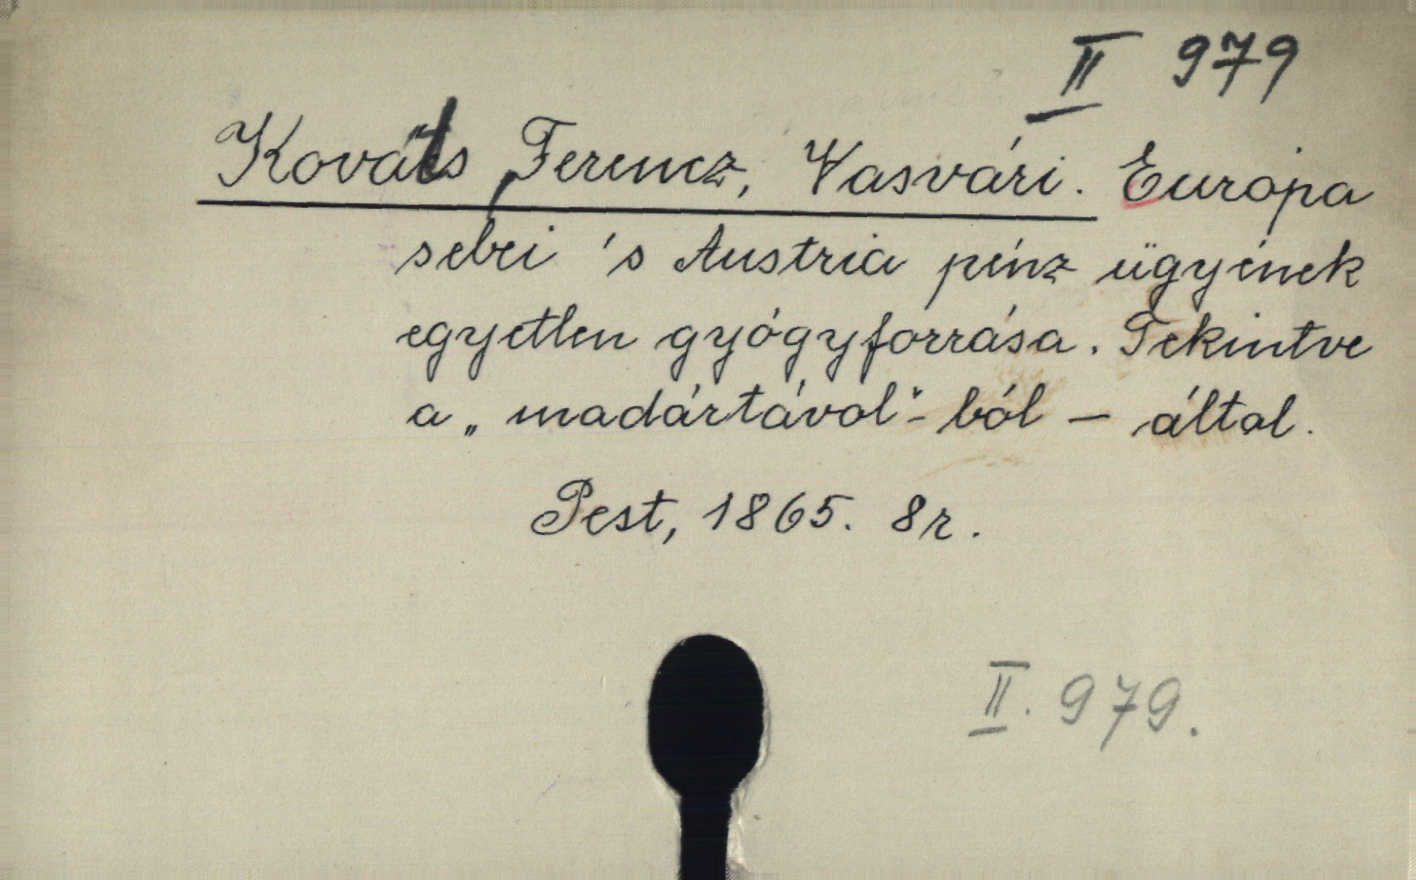 II 979
Kováts, Ferencz, Vasvári. Európa
sebei 's Austria pénz ügyének
egyetlen gyógyforrása. Tekintve
a „madártávol"-ból – által.
Pest, 1865. 8r.
II. 979.